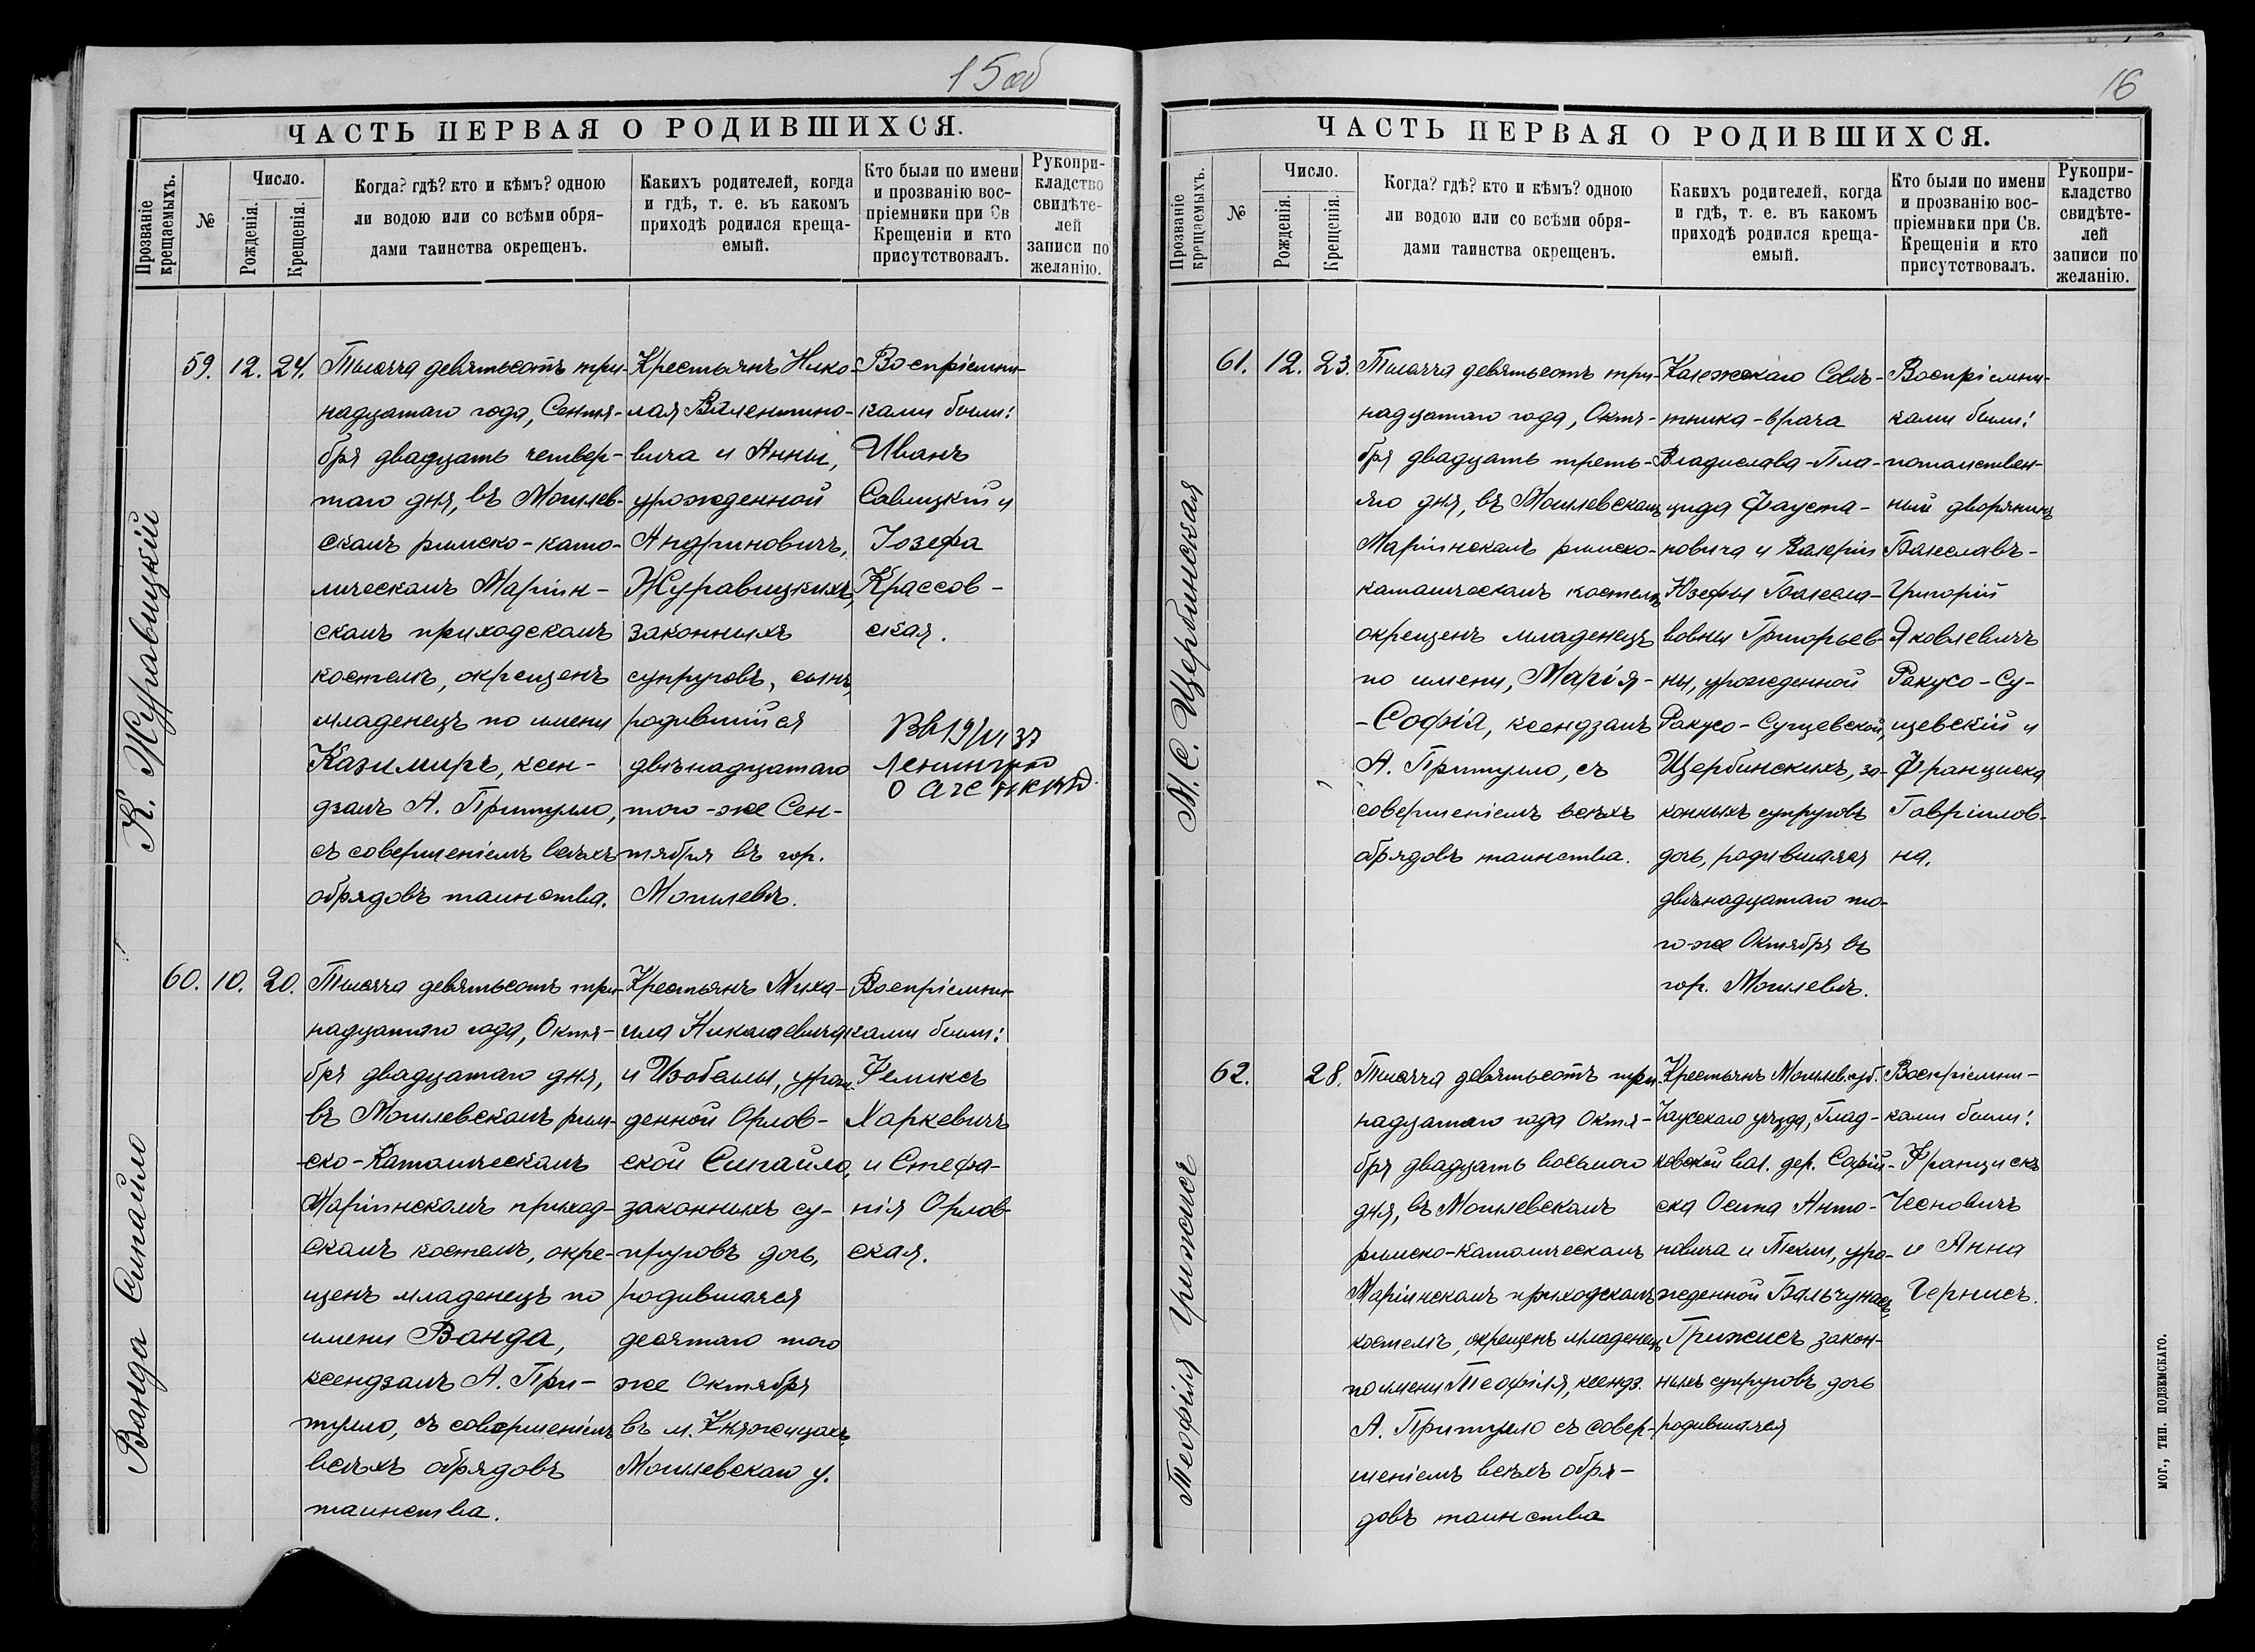 15 об
ЧАСТЬ ПЕРВАЯ О РОДИВШИХСЯ.
Прозваніе крещаемыхъ.
№
Число.
Рожденія.
Крещенія.
Когда? гдѣ? кто и кѣмъ? одною
ли водою или со всѣми обря-
дами таинства окрещенъ.
Какихъ родителей, когда
и гдѣ, т. е. въ какомъ
приходѣ родился креща-
емый.
Кто были по имени
и прозванію вос-
пріемники при Св
Крещеніи и кто
присутствовалъ.
Рукопри-
кладство
свидѣте-
лей
записи по
желанію.
К. Журавицкій
59.
12.
24.
Тысяча девятьсотъ три-
надцатаго года, Сентя-
бря двадцать четвер-
таго дня, въ Могилев-
скомъ римско-като-
лическомъ Маріин-
скомъ приходскомъ
костелѣ, окрещенъ
младенецъ по имени
Казимиръ, ксен-
дзомъ А. Притулло,
съ совершеніемъ всѣхъ
обрядовъ таинства.
Крестьянъ Нико-
лая Валентино-
вича и Анны,
урожденной
Андриновичъ,
Журавицкихъ,
законныхъ
супруговъ, сынъ
родившійся
двѣнадцатаго
того-же Сен-
тября въ гор.
Могилевѣ.
Воспріемни-
ками были:
Иванъ
Савицкій и
Іозефа
Крассов-
ская.
19/VI 37
Ленинград
60.
10.
20.
Ванда Сипайло
Тысяча девятьсотъ три-
надцатаго года, Октя-
бря двадцатаго дня,
въ Могилевскомъ рим-
ско-Католическомъ
Маріинскомъ приход-
скомъ костелѣ, окре-
щенъ младенецъ по
имени Ванда,
ксендзомъ А. При-
тулло, съ совершеніемъ
всѣхъ обрядовъ
таинства.
Крестьянъ Миха-
ила Николаевича
и Изобеллы, урож-
денной Орлов-
ской Сипайло,
законныхъ су-
пруговъ дочь,
родившаяся
десятаго того
же Октября
въ м. Княжицахъ
Могилевскаго у.
Воспріемни-
ками были:
Феликсъ
Харкевичъ
и Стефа-
нія Орлов-
ская.
16
ЧАСТЬ ПЕРВАЯ О РОДИВШИХСЯ.
Прозваніе крещаемыхъ.
№
Число.
Рожденія.
Крещенія.
Когда? гдѣ? кто и кѣмъ? одною
ли водою или со всѣми обря-
дами таинства окрещенъ.
Какихъ родителей, когда
и гдѣ, т. е. въ какомъ
приходѣ родился креща-
емый.
Кто были по имени
и прозванію вос-
пріемники при Св.
Крещеніи и кто
присутствовалъ.
Рукопри-
кладство
свидѣте-
лей
записи по
желанію.
М. С. Щербинская
61.
12.
23.
Тысяча девятьсотъ три-
надцатаго года, Октя-
бря двадцать треть-
яго дня, въ Могилевскомъ
Маріинскомъ римско-
католическомъ костелѣ
окрещенъ младенецъ
по имени, Марія-
-Софія, ксендзомъ
А. Притулло, съ
совершеніемъ всѣхъ
обрядовъ таинства.
Колежскаго Совѣ-
тника-врача
Владислава-Пла-
цида Фауста-
новича и Валеріи
Юзефы Болесла-
вовны Григорьев-
ны, урожденной
Ракусо-Сущевской,
Щербинскихъ, за-
конныхъ супруговъ
дочь, родившаяся
двѣнадцатаго то-
го-же Октября въ
гор. Могилевѣ.
Воспріемни-
ками были:
потомствен-
ный дворянинъ
Болеславъ-
Григорій
Яковлевичъ
Ракусо-Су-
щевскій и
Франциска
Гавріилов-
на.
Теофілія Грижисъ
62.
28.
Тысяча девятьсотъ три-
надцатаго года Октя-
бря двадцать восьмого
дня, въ Могилевскомъ
римско-католическомъ
Маріинскомъ приходскомъ
костелѣ, окрещенъ младенецъ
по имени Теофілія, ксендз.
А. Притулло съ совер-
шеніемъ всѣхъ обря-
довъ таинства
Крестьянъ Могилев. губ.
Чаусскаго уѣзда, Глад-
ковской вол. дер. Софій-
ска Осипа Анто-
новича и Теклы, уро-
жденной Бальчунасъ,
Грижисъ закон-
ныхъ супруговъ дочь
родившаяся
Воспріемни-
ками были:
Францискъ
Чесновичъ
и Анна
Чернисъ.
МОГ., ТИП. ПОДЗЕМСКАГО.